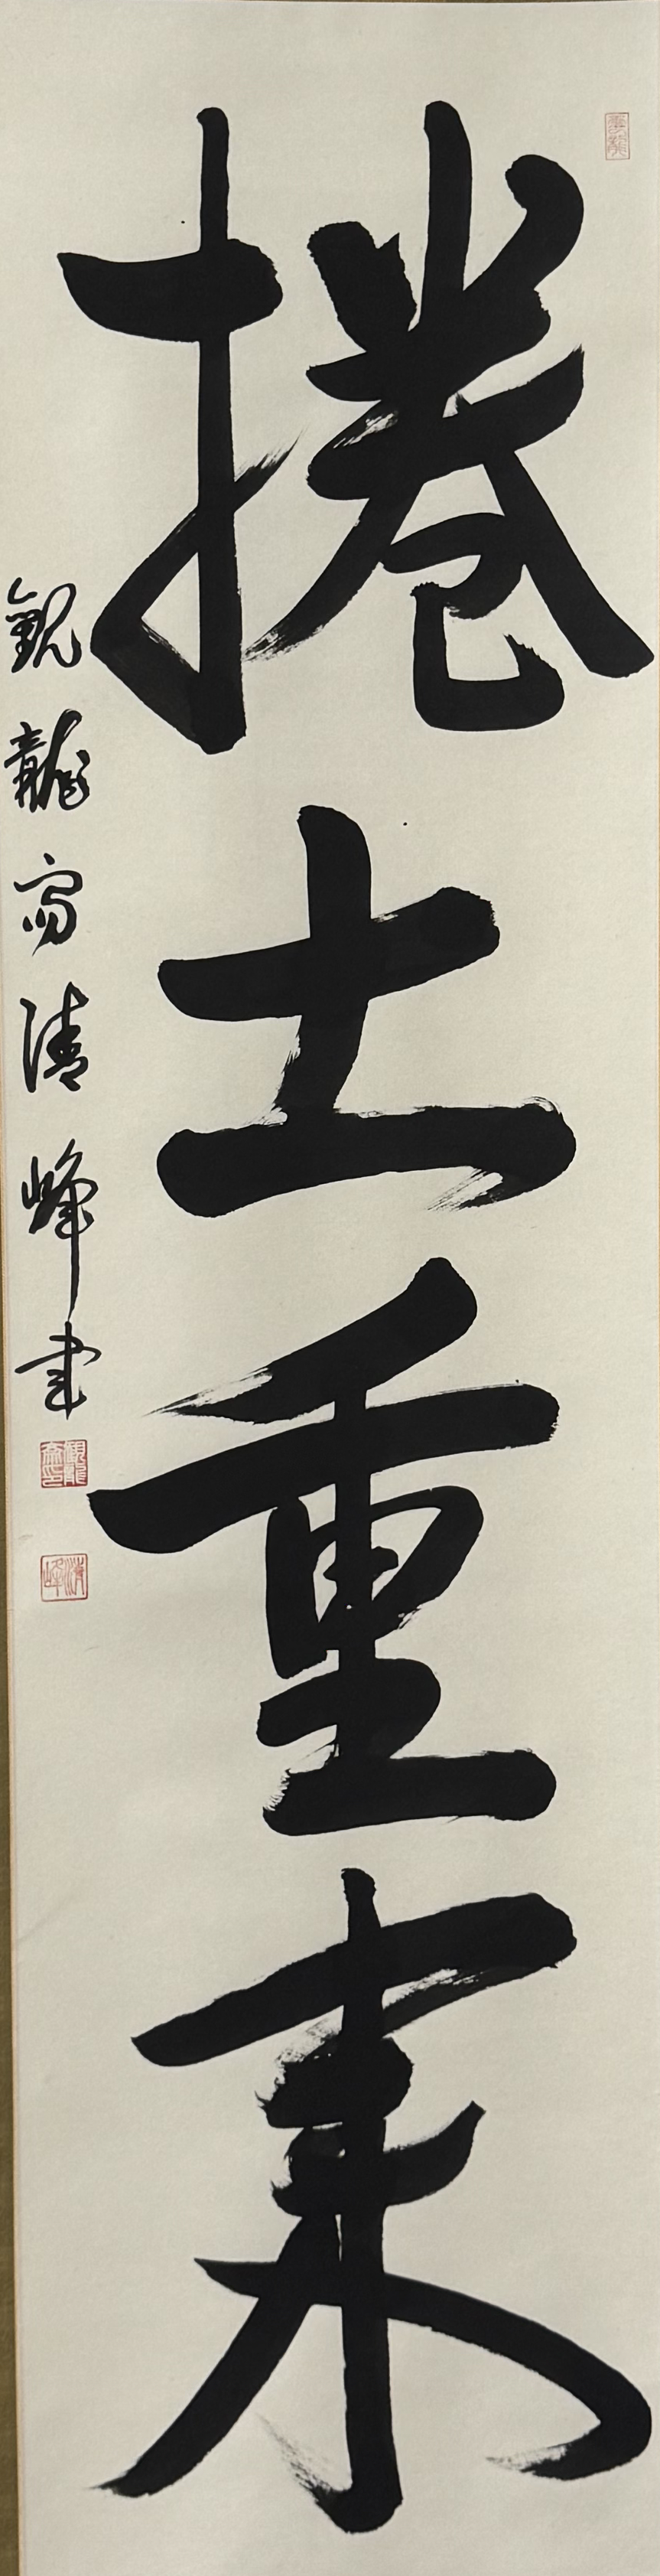 捲土重来
觀龍窩清峰書